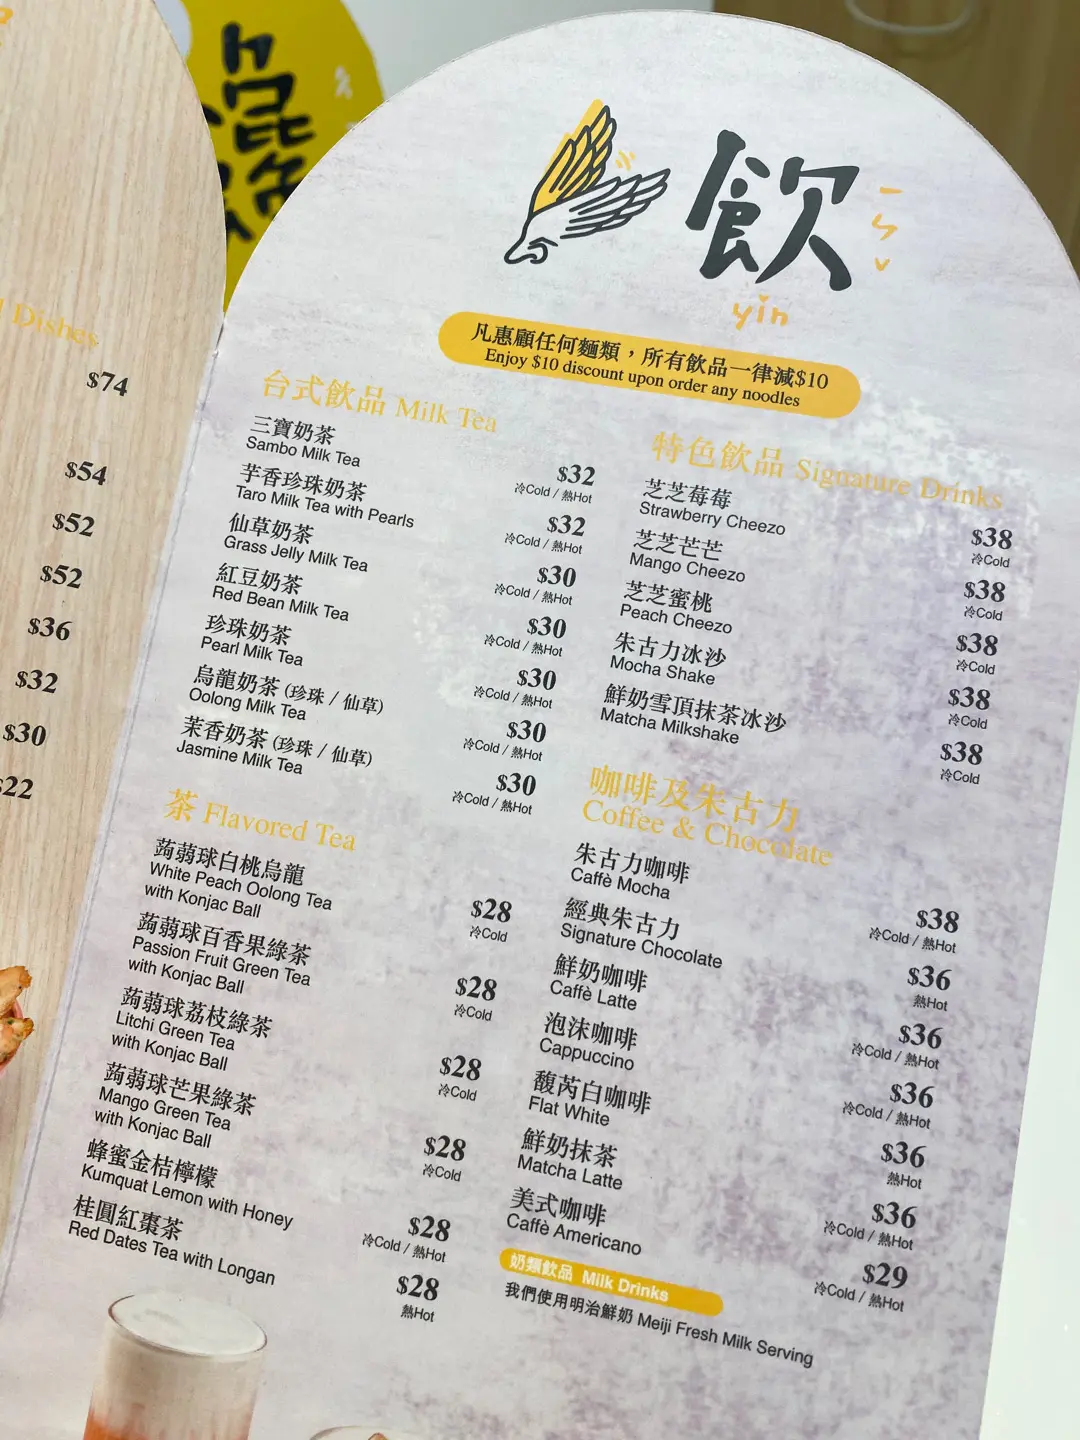 l Dishes
$74
$54
$52
$52
$36
$32
$30
$22
飲
ㄧㄣˇ
yin
凡惠顧任何麵類，所有飲品一律減$10
Enjoy $10 discount upon order any noodles
台式飲品 Milk Tea
三寶奶茶
Sambo Milk Tea
$32
冷Cold / 熱Hot
芋香珍珠奶茶
Taro Milk Tea with Pearls
$32
冷Cold / 熱Hot
仙草奶茶
Grass Jelly Milk Tea
$30
冷Cold / 熱Hot
紅豆奶茶
Red Bean Milk Tea
$30
冷Cold / 熱Hot
珍珠奶茶
Pearl Milk Tea
$30
冷Cold / 熱Hot
烏龍奶茶 (珍珠 / 仙草)
Oolong Milk Tea
$30
冷Cold / 熱Hot
茉香奶茶 (珍珠 / 仙草)
Jasmine Milk Tea
$30
冷Cold / 熱Hot
茶 Flavored Tea
蒟蒻球白桃烏龍
White Peach Oolong Tea
with Konjac Ball
$28
冷Cold
蒟蒻球百香果綠茶
Passion Fruit Green Tea
with Konjac Ball
$28
冷Cold
蒟蒻球荔枝綠茶
Litchi Green Tea
with Konjac Ball
$28
冷Cold
蒟蒻球芒果綠茶
Mango Green Tea
with Konjac Ball
$28
冷Cold
蜂蜜金桔檸檬
Kumquat Lemon with Honey
$28
冷Cold / 熱Hot
桂圓紅棗茶
Red Dates Tea with Longan
$28
熱Hot
特色飲品 Signature Drinks
芝芝莓莓
Strawberry Cheezo
$38
冷Cold
芝芝芒芒
Mango Cheezo
$38
冷Cold
芝芝蜜桃
Peach Cheezo
$38
冷Cold
朱古力冰沙
Mocha Shake
$38
冷Cold
鮮奶雪頂抹茶冰沙
Matcha Milkshake
$38
冷Cold
咖啡及朱古力
Coffee & Chocolate
朱古力咖啡
Caffè Mocha
$38
冷Cold / 熱Hot
經典朱古力
Signature Chocolate
$36
熱Hot
鮮奶咖啡
Caffè Latte
$36
冷Cold / 熱Hot
泡沫咖啡
Cappuccino
$36
冷Cold / 熱Hot
馥芮白咖啡
Flat White
$36
熱Hot
鮮奶抹茶
Matcha Latte
$36
冷Cold / 熱Hot
美式咖啡
Caffè Americano
$29
冷Cold / 熱Hot
奶類飲品 Milk Drinks
我們使用明治鮮奶 Meiji Fresh Milk Serving